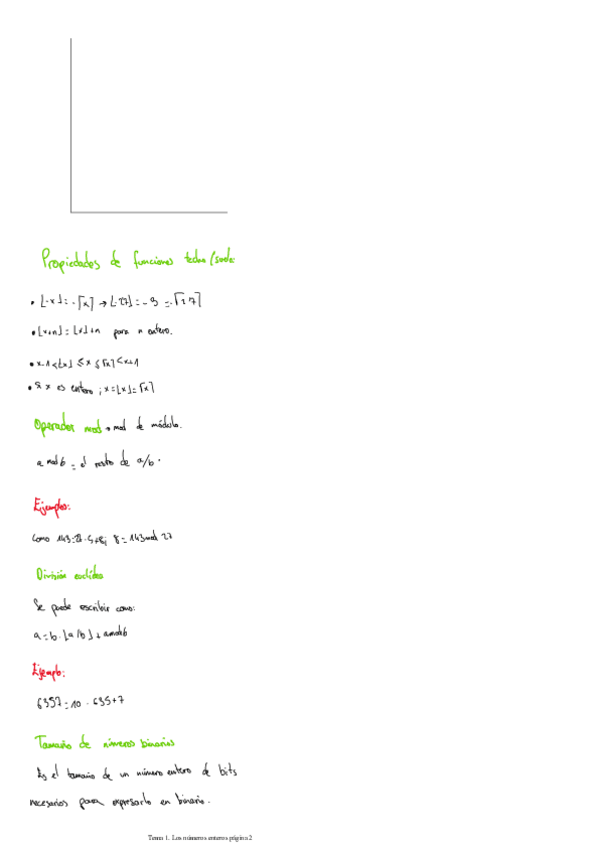 Propiedades de funciones techo/suelo
• ⌊-x⌋ = -⌈x⌉ →
• ⌊x+n⌋ = ⌊x⌋+n para n entero.
• x-1 < ⌊x⌋ ≤ x ≤ ⌈x⌉ < x+1
• Si x es entero ; x = ⌊x⌋ = ⌈x⌉
Operador mod → mod de módulo.
a mod b = el resto de a/b.
Ejemplos:
Como ; 8 = 143 mod 27
División euclídea
Se puede escribir como:
a = b · ⌊a/b⌋ + a mod b
Ejemplo:
6357 = 10 · 635+7
Tamaño de números binarios
Es el tamaño de un número entero de bits
necesarios para expresarlo en binario.
Tema 1. Los números enteros página 2